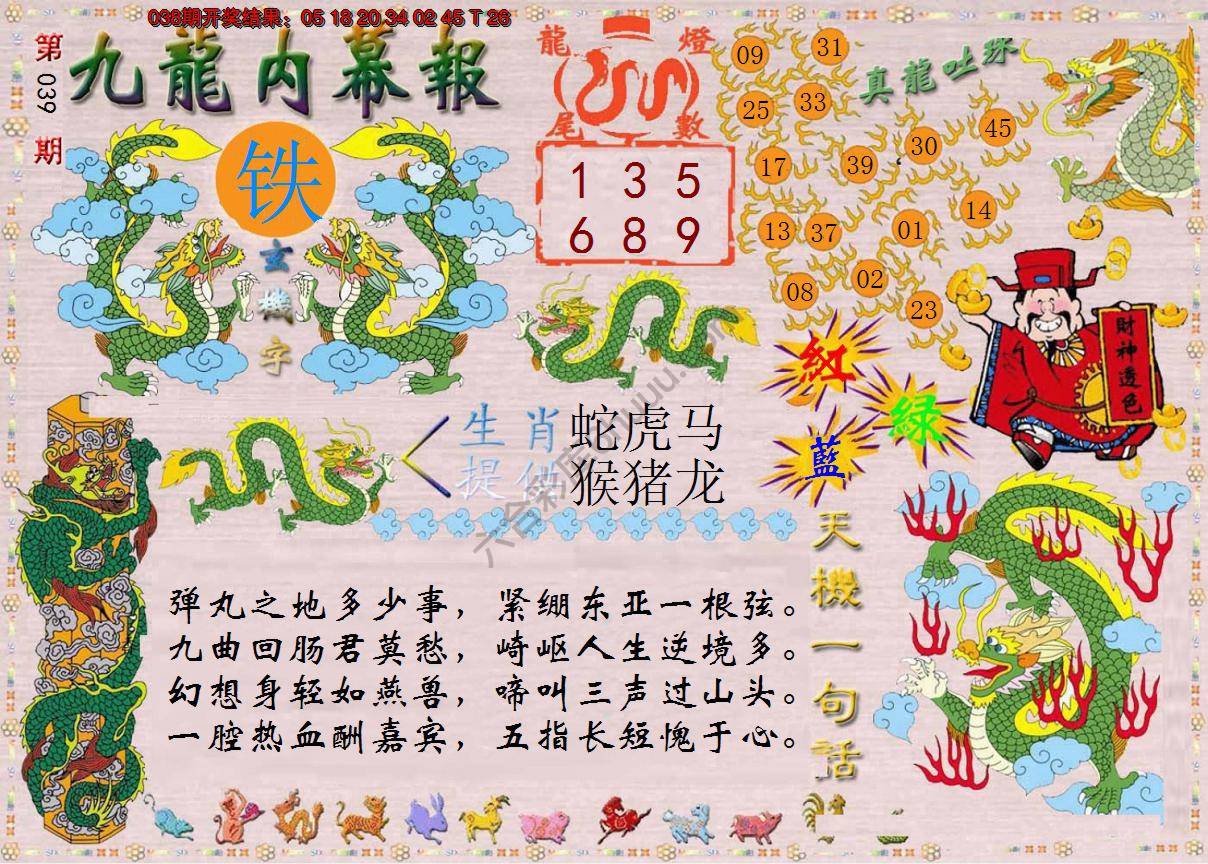 038期开奖结果：05 18 20 34 02 45 T 26
第039期
九龍内幕報
铁
玄機字
龍燈
尾數
1 3 5
6 8 9
真龍吐珠
09
31
25
33
45
30
17
39
14
13
37
01
02
08
23
財神透色
紅
綠
藍
生肖 蛇虎马
提供 猴猪龙
天機一句話
弹丸之地多少事，紧绷东亚一根弦。
九曲回肠君莫愁，崎岖人生逆境多。
幻想身轻如燕兽，啼叫三声过山头。
一腔热血酬嘉宾，五指长短愧于心。